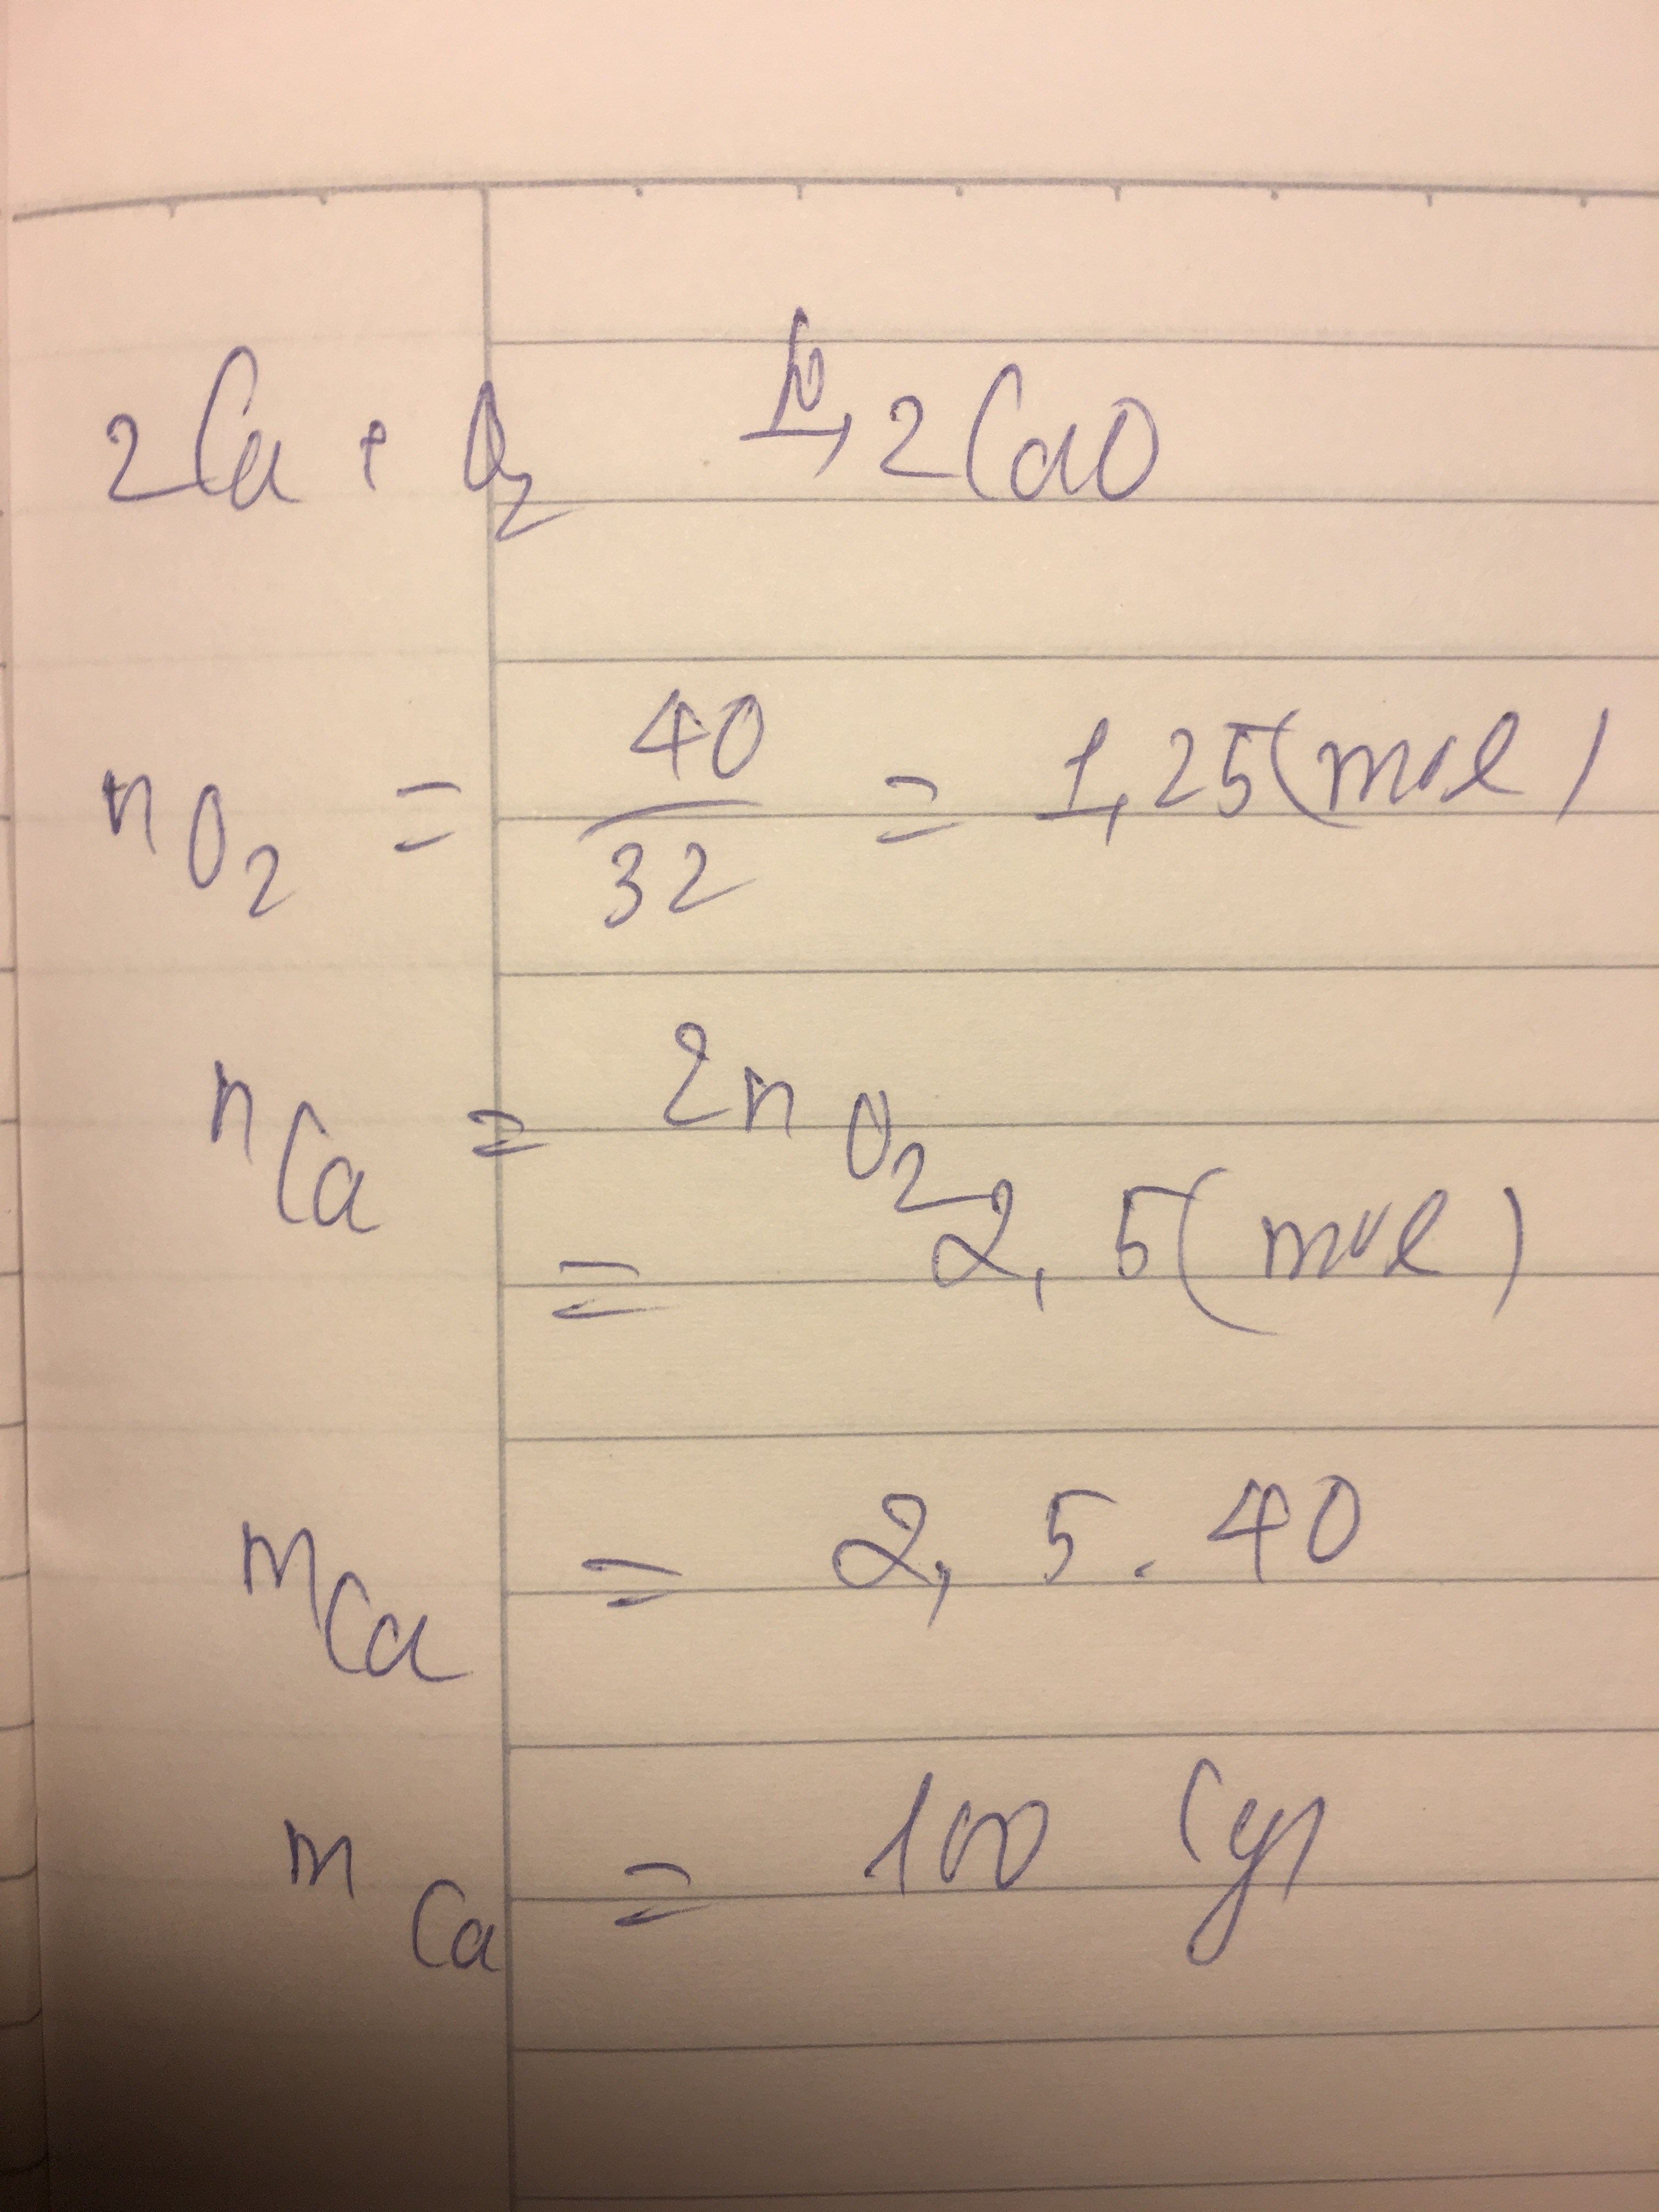 2Ca + O₂ t°→ 2CaO
nO₂ = 40/32 = 1,25(mol)
nCa = 2nO₂
= 2,5(mol)
mCa = 2,5.40
mCa = 100 (g)